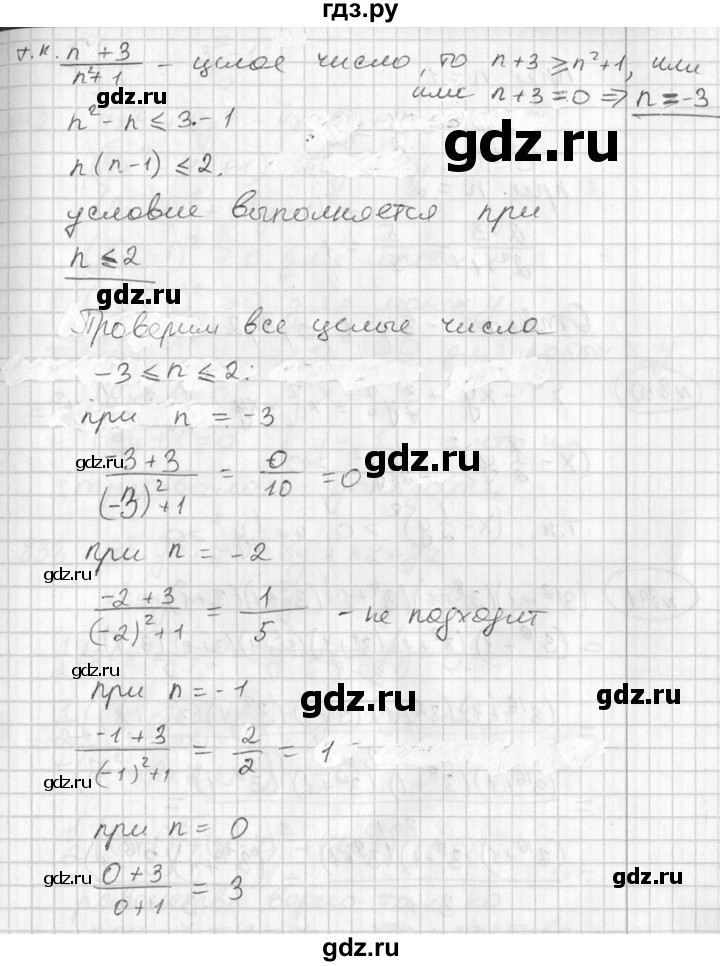 гдз.ру
т.к. n+3/n²+1 - целое число, то n+3 ⩾ n²+1, или
или n+3=0 ⇒ n=-3
gdz.ru
n² - n ⩽ 3 - 1
gdz.ru
n(n-1) ⩽ 2.
условие выполняется при
n ⩽ 2
gdz.ru
Проверим все целые числа
-3 ⩽ n ⩽ 2:
при n = -3
gdz.ru
-3+3/(-3)²+1 = 0/10 = 0
gdz.ru
при n = -2
gdz.ru
-2+3/(-2)²+1 = 1/5 - не подходит
gdz.ru
при n = -1
gdz.ru
gdz.ru
-1+3/(-1)²+1 = 2/2 = 1
gdz.ru
при n = 0
gdz.ru
0+3/0+1 = 3
gdz.ru
gdz.ru